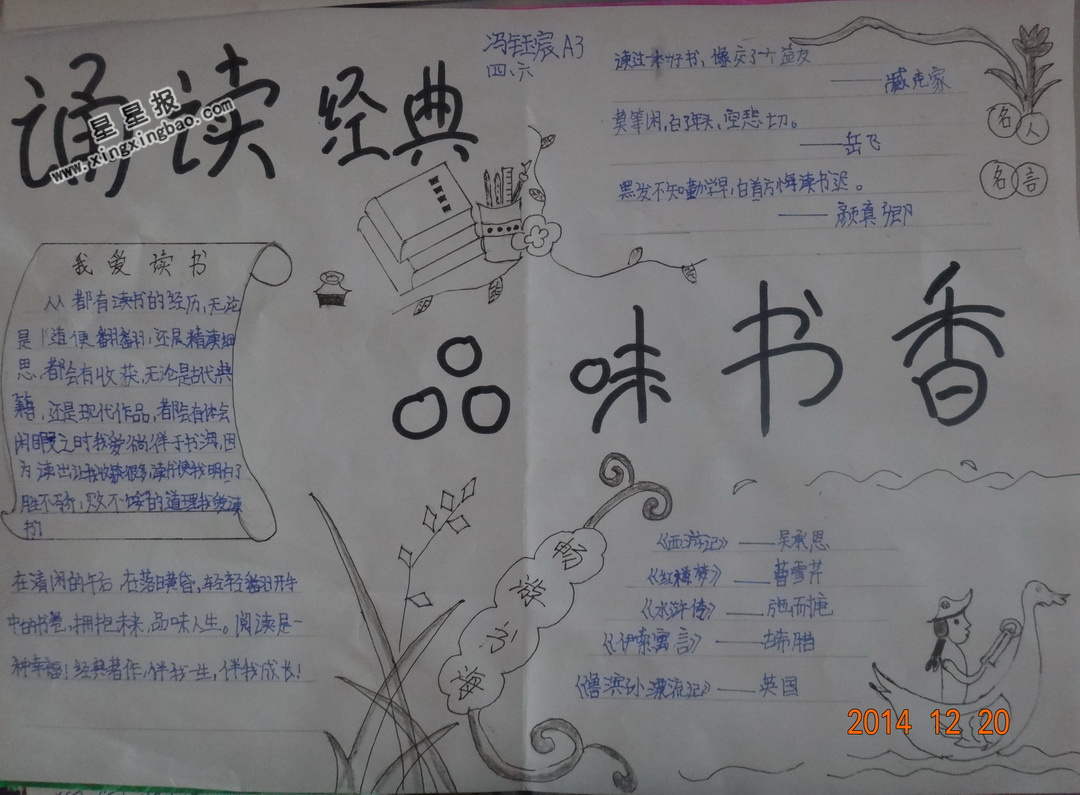 诵读经典
星星报
www.xingxingbao.com
冯钰宸 A3
四、六
读过一本好书，像交了一个益友
——臧克家
莫等闲，白了年头，空悲切。
——岳飞
黑发不知勤学早，白首方悔读书迟。
——颜真卿
名人
名言
我爱读书
人人都有读书的经历，无论
是随便翻翻，还是精读细
思，都会有收获，无论是古代典
籍，还是现代作品，都会有体会
闲暇之时我爱徜徉于书海，因
为读书让我收获很多，读书使我明白了
胜不骄，败不馁的道理我爱读
书
在清闲的午后 在落日黄昏，轻轻翻开手
中的书卷，拥抱未来，品味人生。阅读是一
种幸福！经典著作，伴我一生，伴我成长！
品味书香
《西游记》——吴承恩
《红楼梦》——曹雪芹
《水浒传》——施耐庵
《伊索寓言》——古希腊
《鲁滨孙漂流记》——英国
2014 12 20